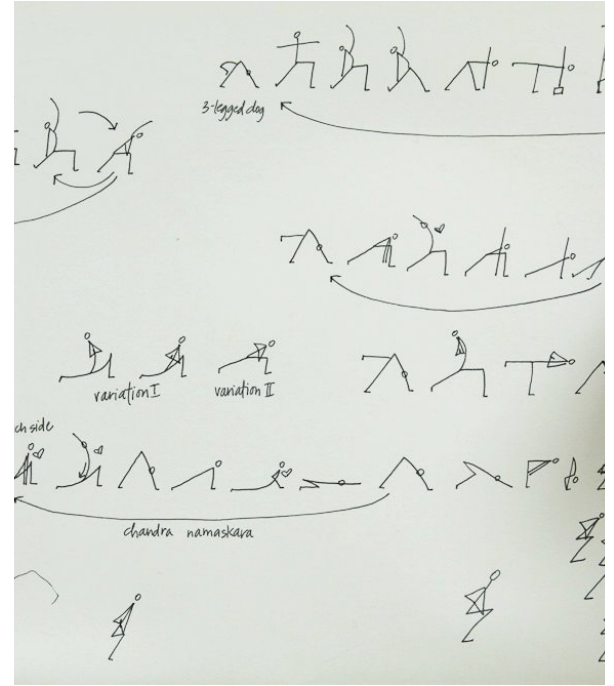 3-legged dog
variation I
variation II
ch side
chandra namaskara